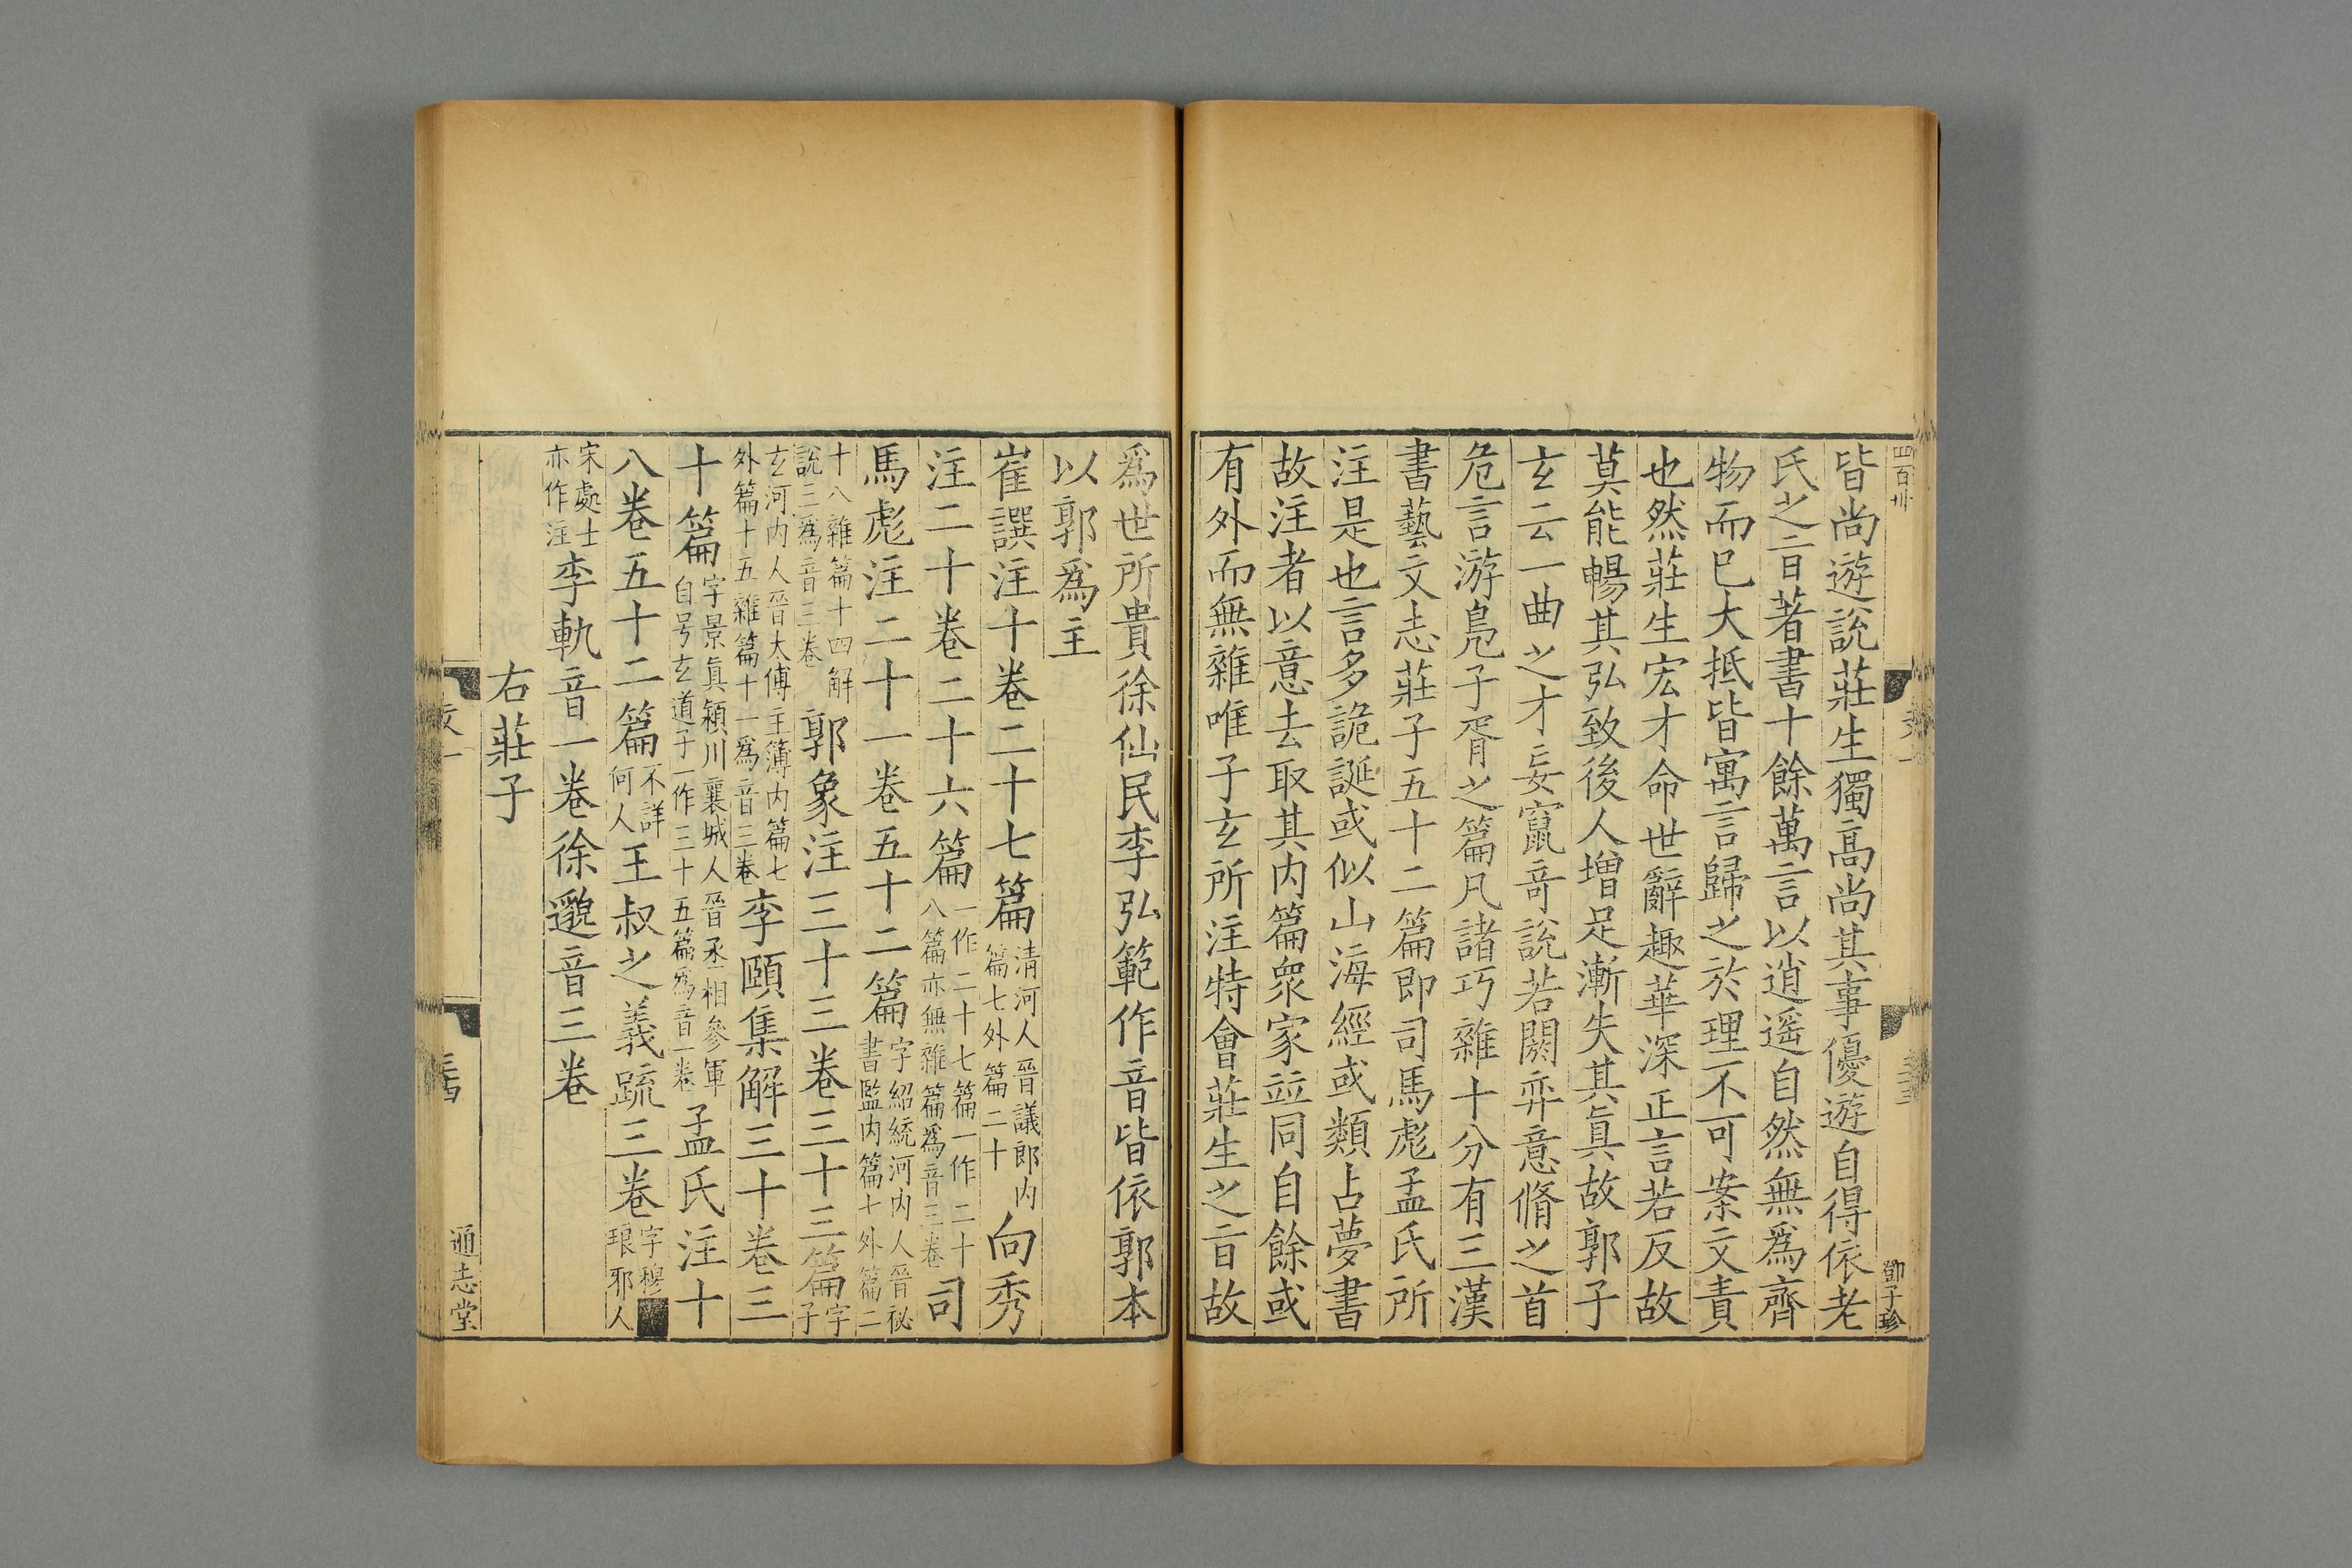 皆尚遊說莊生獨高尚其事優遊自得依老
氏之旨著書十餘萬言以逍遥自然無爲齊
物而已大抵皆寓言歸之於理不可案文責
也然莊生宏才命世辭趣華深正言若反故
莫能暢其弘致後人增足漸失其眞故郭子
玄云一曲之才妄竄奇說若閼弈意脩之首
危言游鳧子胥之篇凡諸巧雜十分有三漢
書藝文志莊子五十二篇即司馬彪孟氏所
注是也言多詭誕或似山海經或類占夢書
故注者以意去取其内篇衆家竝同自餘或
有外而無雜唯子玄所注特會莊生之旨故
爲世所貴徐仙民李弘範作音皆依郭本
以郭爲主
崔譔注十卷二十七篇清河人晉議郎内篇七外篇二十向秀
注二十卷二十六篇一作二十七篇一作二十八篇亦無雜篇爲音三卷司
馬彪注二十一卷五十二篇字紹統河内人晉祕書監内篇七外篇二
十八雜篇十四解說三爲音三卷郭象注三十三卷三十三篇字子
玄河内人晉太傅主簿内篇七外篇十五雜篇十一爲音三卷李頤集解三十卷三
十篇字景眞潁川襄城人晉丞相參軍自号玄道子一作三十五篇爲音一卷孟氏注十
八卷五十二篇不詳何人王叔之義疏三卷字穆琅邪人
宋處士亦作注李軌音一卷徐邈音三卷
右莊子
通志堂